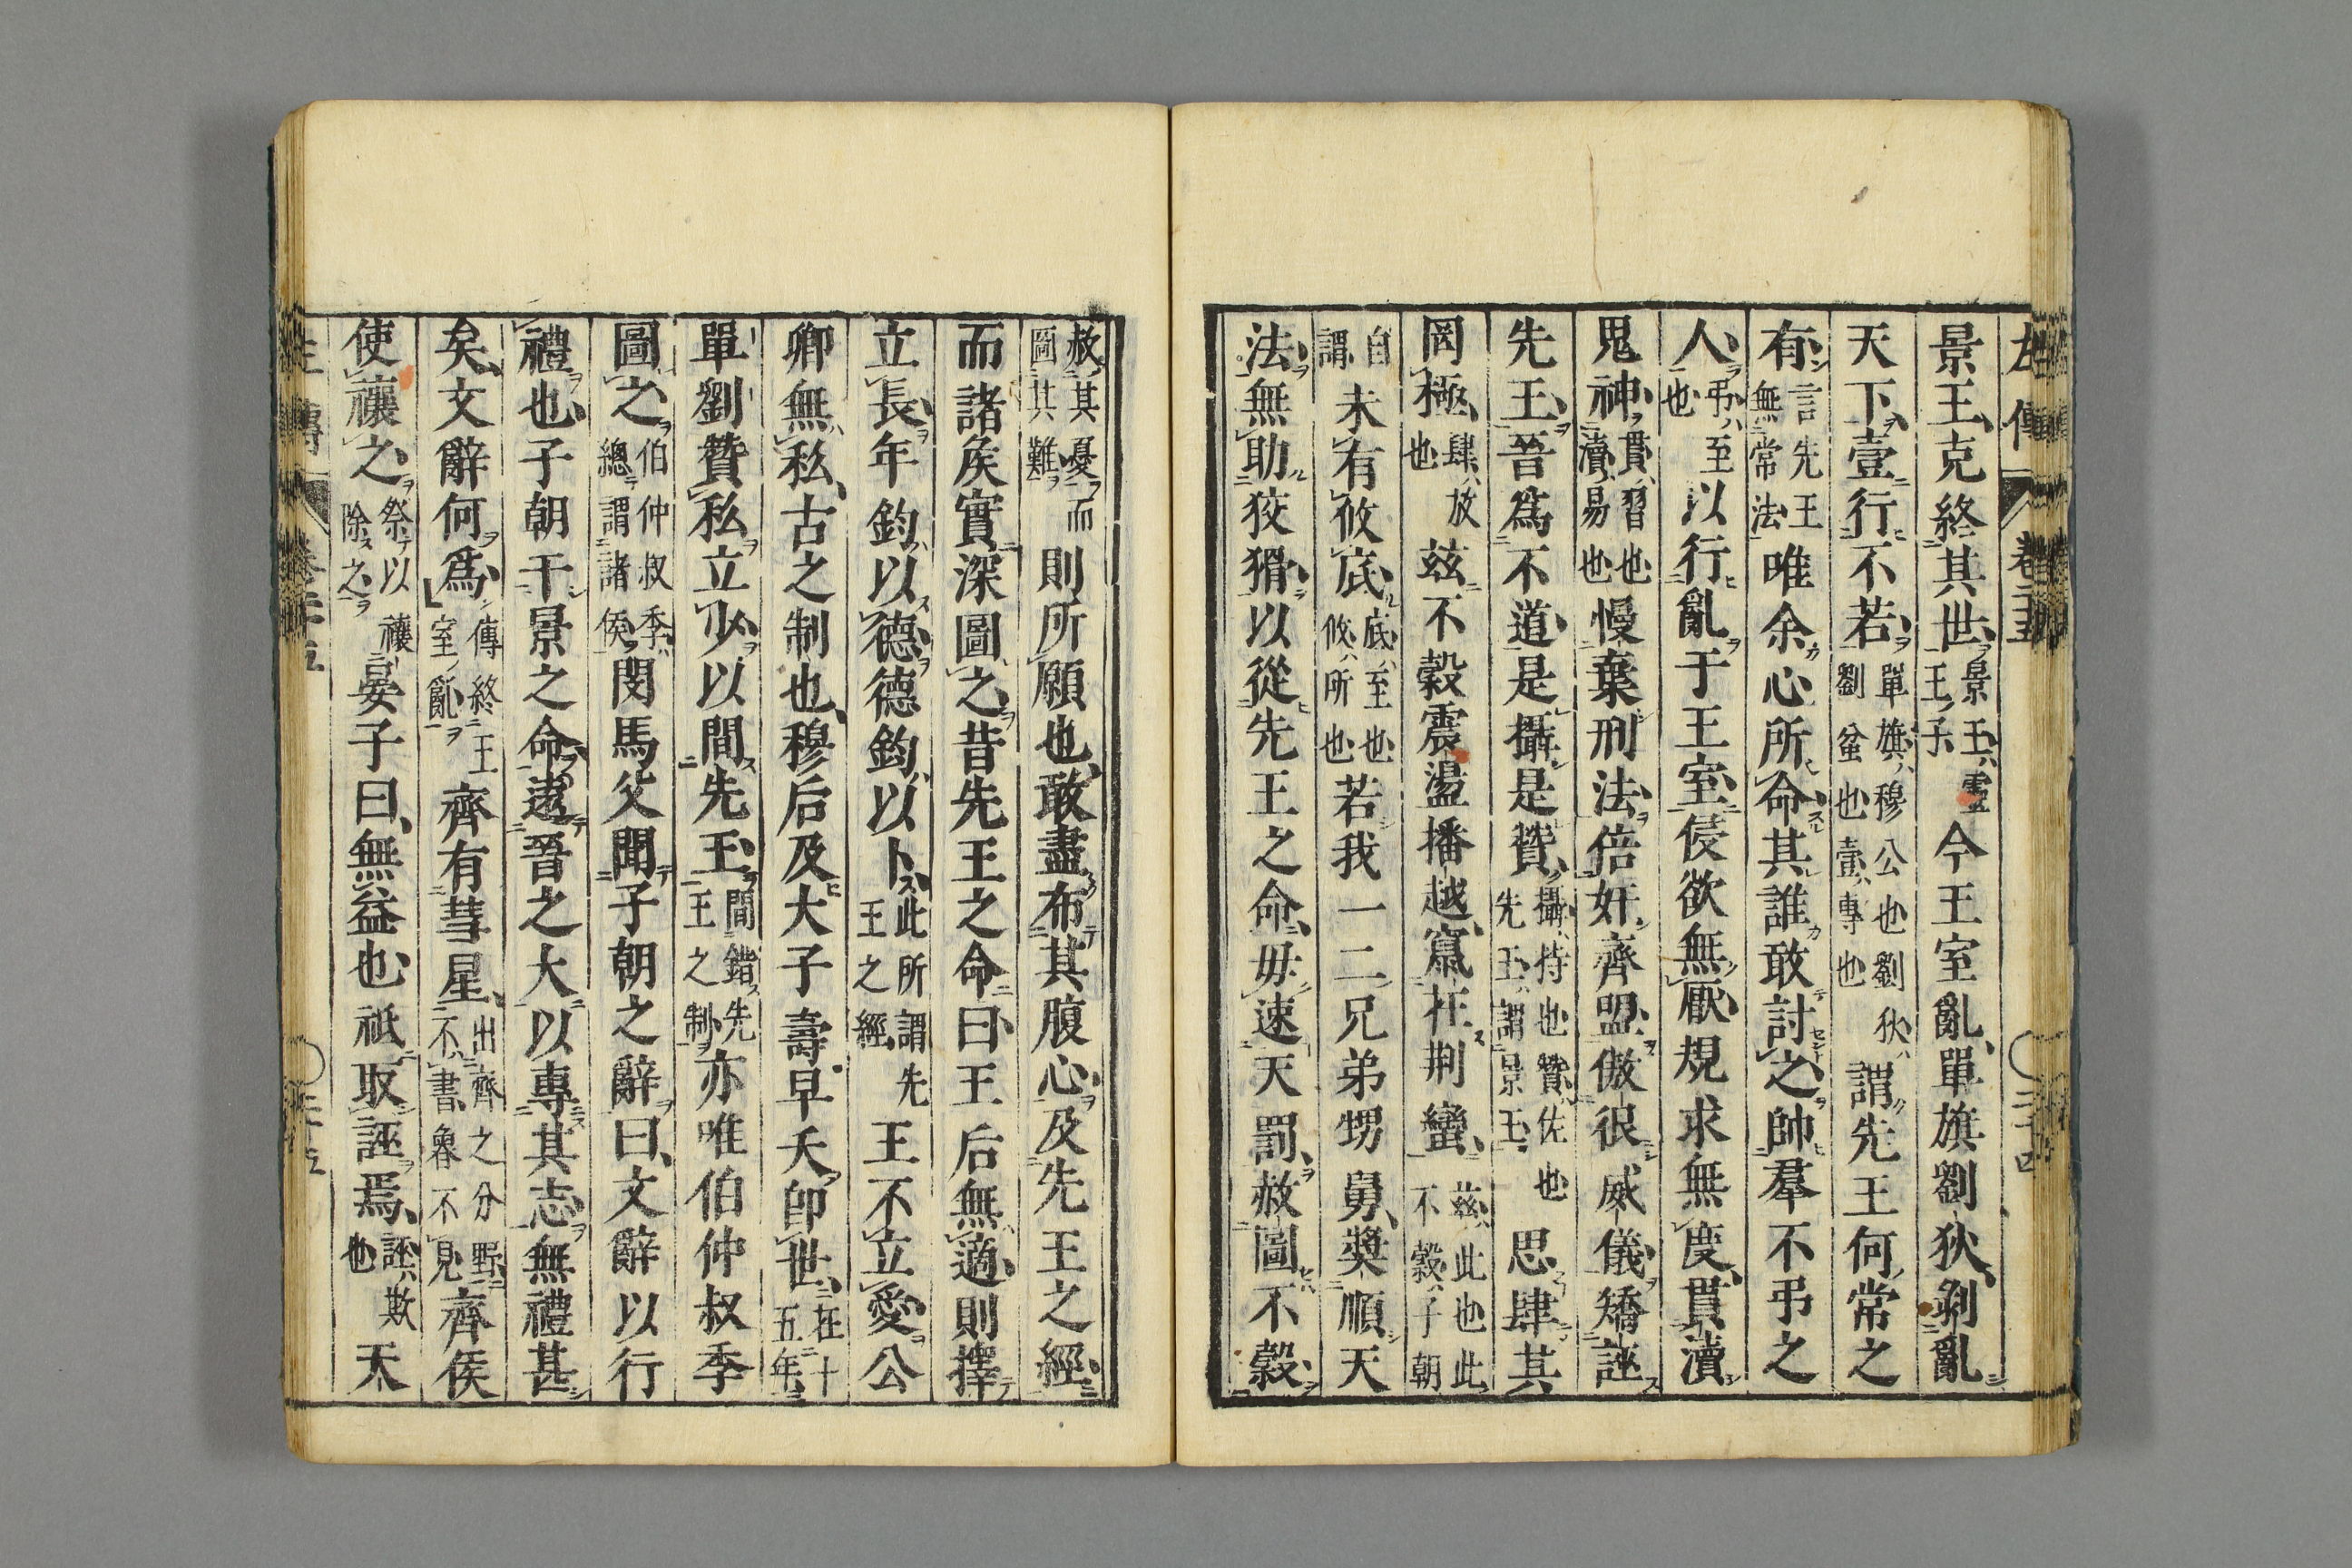 左傳 卷二五 二十四
景王克終其世景王靈王子今王室亂單旗劉狄剝亂
天下壹行不若單旗穆公也劉狄劉蚠也壹專也謂先王何常之
有言先王無常法唯余心所命其誰敢討之帥羣不弔之
人弔至也以行亂于王室侵欲無厭規求無度貫瀆
鬼神貫習也瀆易也慢棄刑法倍奸齊盟傲很威儀矯誣
先王晉爲不道是攝是贊攝持也贊佐也先王謂景王思肆其
罔極肆放也茲不穀震盪播越竄在荆蠻茲此也此不穀子朝
自謂未有攸底底至也攸所也若我一二兄弟甥舅奬順天
法無助狡猾以從先王之命毋速天罰赦圖不穀
赦其憂而圖其難則所願也敢盡布其腹心及先王之經
而諸矦實深圖之昔先王之命曰王后無適則擇
立長年鈞以德德鈞以卜此所謂先王之經王不立愛公
卿無私古之制也穆后及大子壽早夭卽世在十五年
單劉贊私立少以間先王間錯先王之制亦唯伯仲叔季
圖之伯仲叔季總謂諸侯閔馬父聞子朝之辭曰文辭以行
禮也子朝干景之命遠晉之大以專其志無禮甚
矣文辭何爲傳終王室亂齊有彗星出齊之分野不書魯不見齊侯
使禳之祭以禳除之晏子曰無益也祗取誣焉誣欺也天
左傳 卷二五 二十五